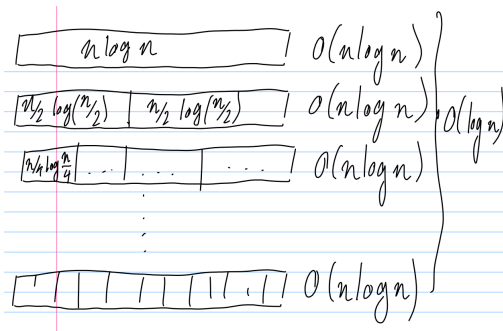 n log n O(n log n)
n/2 log(n/2) n/2 log(n/2) O(n log n) O(log n)
n/4 log n/4 ... ... ... O(n log n)
O(n log n)